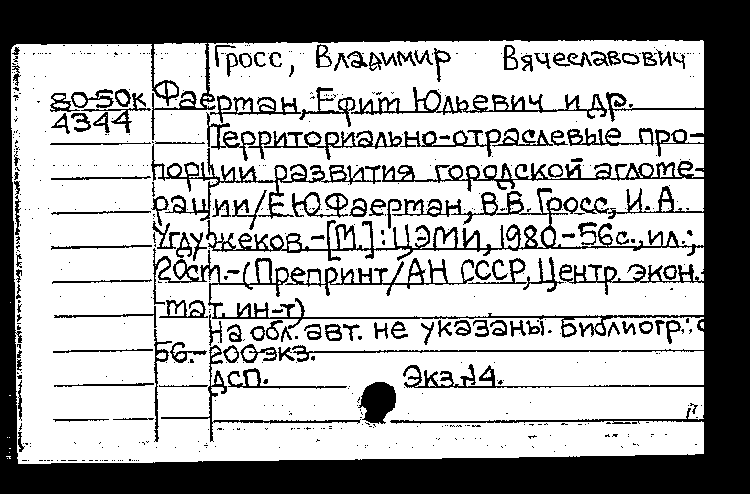 Гросс, Владимир Вячеславович
80-50к Фаертан, Ефит Юльевич и др.
4344
Территориально-отраслевые про-
порции развития городской аглоте-
рации/Е.Ю.Фаертан, В.В. Гросс, И.А.
Углужеков.-[М.]: ЦЭМИ, 1980.-56с., ил.;
20ст.-(Препринт/АН СССР, Центр. экон.-
-тат. ин-т)
На обл. авт. не указаны. Библиогр.: с
56.-200экз.
ДСП. Экз.№4.